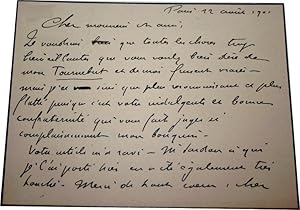 Paris 22 août 1901
Cher monsieur et ami,
Je voudrais que toutes les choses trop
bienveillantes que vous voulez bien dire de
mon Tournebut et de moi fussent vraies -
mais je n'en suis que plus reconnaissant et plus
flatté puisque c'est votre indulgente et bonne
confraternité qui vous fait juger si
complaisamment mon bouquin -
Votre article m'a ravi - M. Sardou à qui
je l'ai porté hier en a été également très
touché - Merci de tout cœur, cher